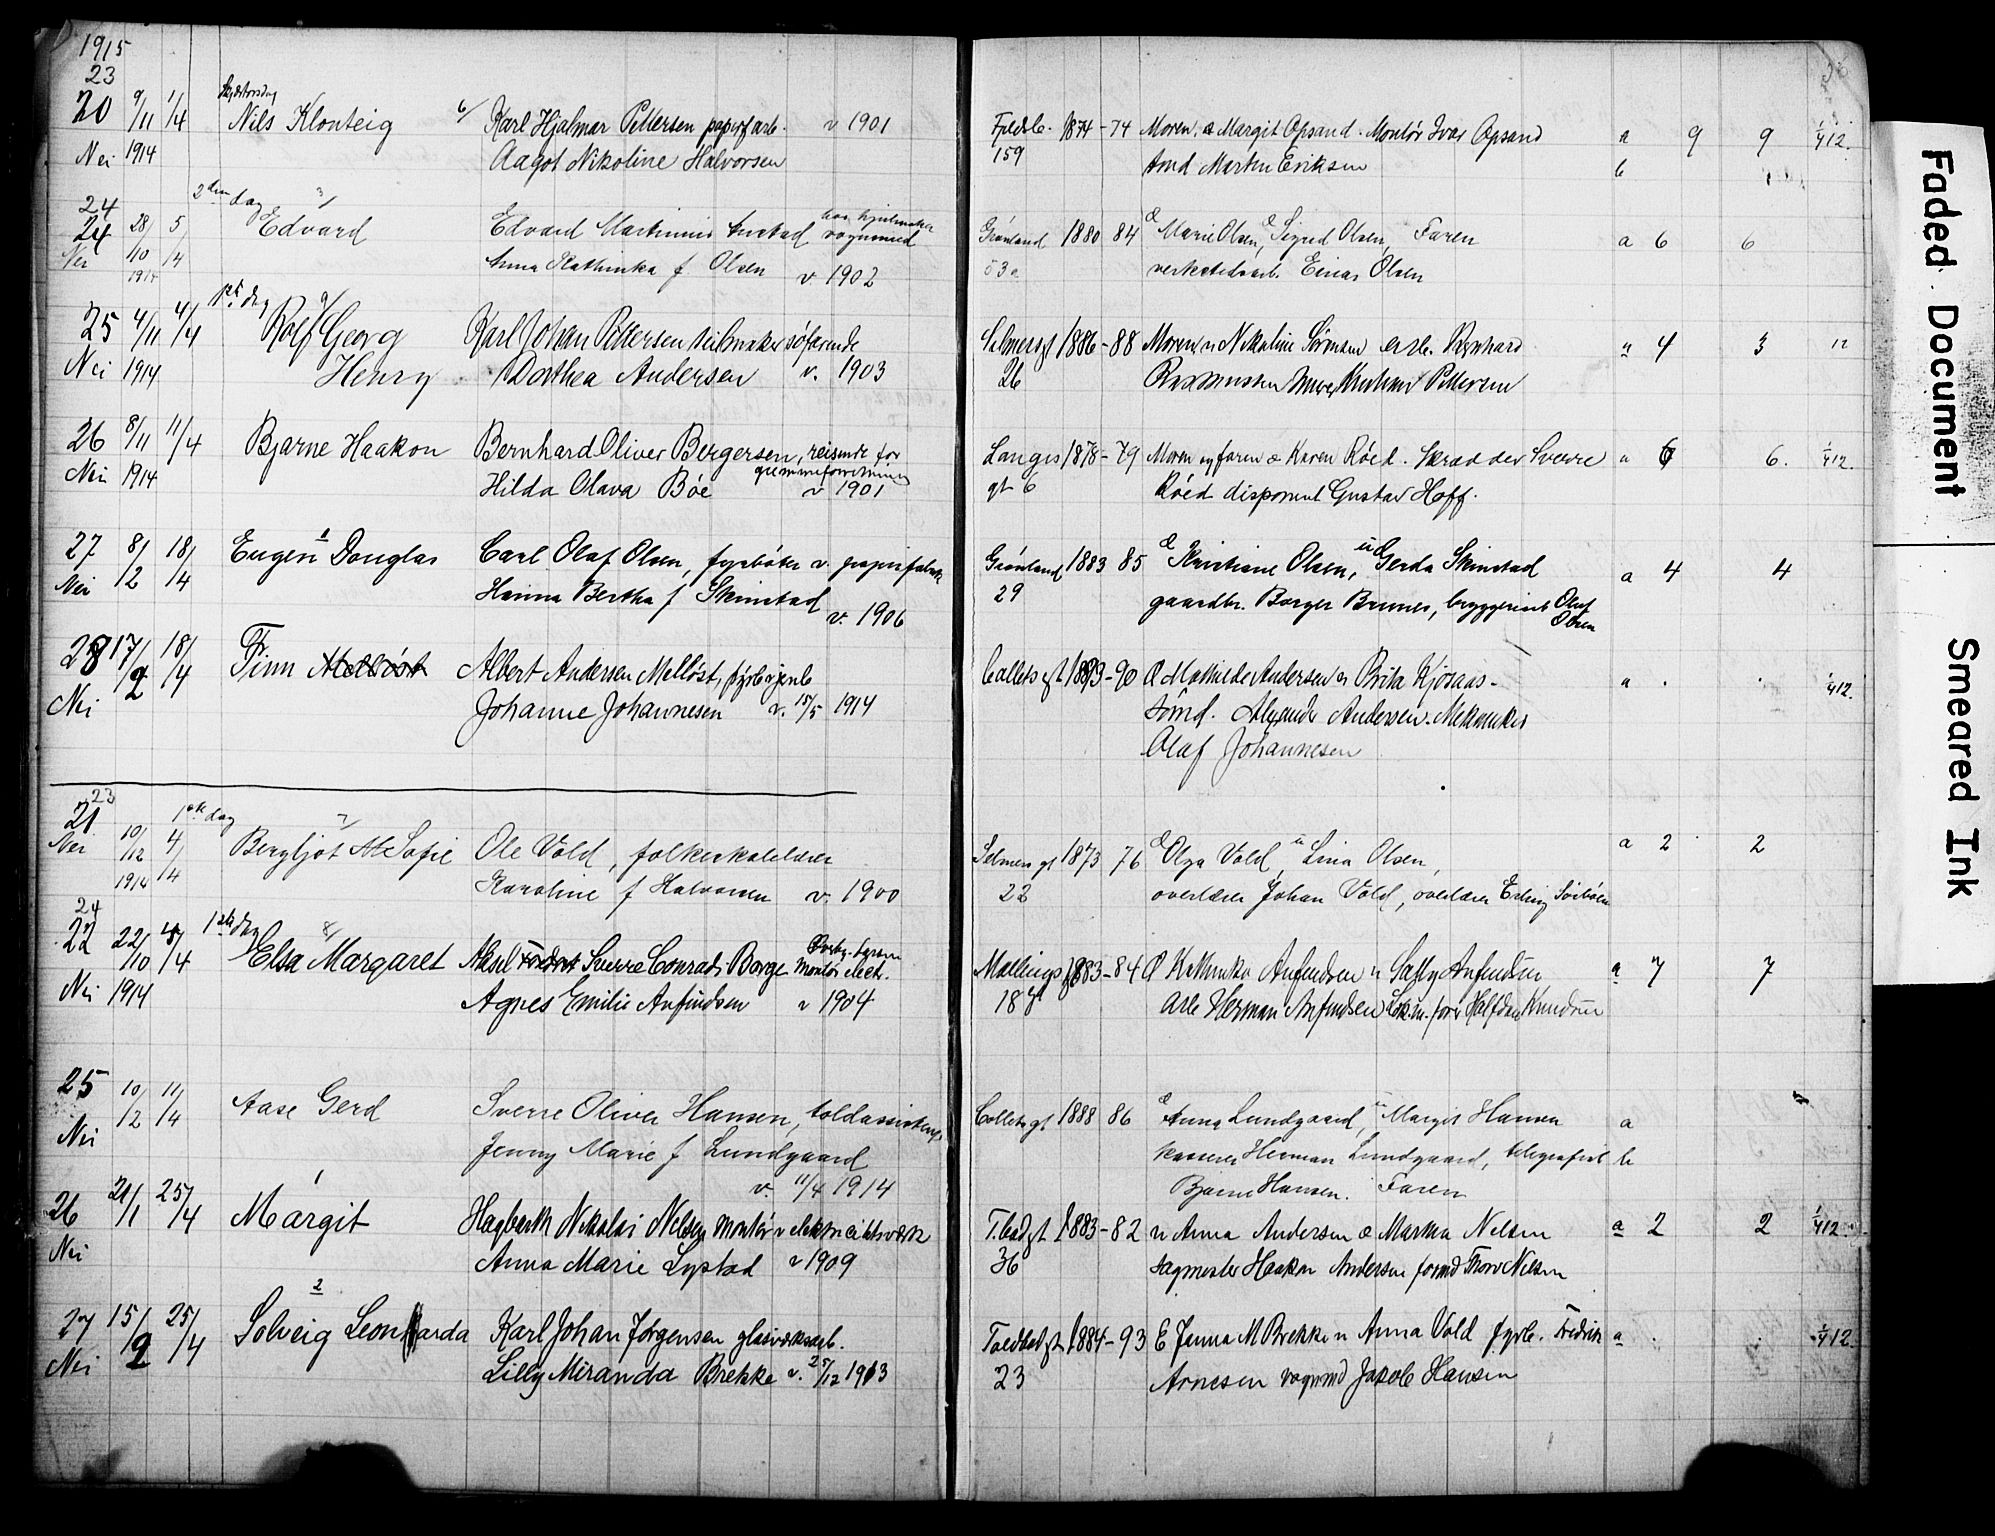 1915
23
20 9/11 1/4 Skjærtorsdag
Nils Klonteig 6/ Karl Hjalmar Pettersen papirfarb. v 1901
Nei 1914 Aagot Nikoline Halvorsen
24 2den dag 3/
24 28/10 5/4 Edvard Edvard Martinius Anstad vognmand
Nei 1914 Anna Kathinka f Olsen v. 1902
1ste dag 9/
25 4/11 4/4 Rolf Georg Karl Johan Pettersen seilmaker søfarende
Nei 1914 Henry Dorthea Andersen v. 1903
26 8/11 11/4 Bjarne Haakon Bernhard Oliver Bergersen, reisende for
gummiforretning
Nei 1914 Hilda Olava Böe v 1901
27 8/2 18/4 Eugen Douglas Carl Olaf Olsen, fyrbøter v. papirfabrik
Nei Hanna Bertha f Skinstad
v. 1906
28 17/2 18/4 Finn Albert Andersen Melløst,
Nei Johanne Johannesen v. 15/5 1914
23
21 1ste dag 7/
Nei 10/12 4/4 Bergljot M Sofie Ole Vold, folkeskolelærer
1914 Karoline f Halvorsen v. 1900
24
22 22/10 4/4 1ste dag 8/
Elsa Margaret Aksel Sverre Conrad Borge Montør elect.
Nei 1914 Agnes Emilie Anfindsen v 1904
25 10/2 11/4 Aase Gerd Sverre Oliver Hansen, toldassistent
Nei Jenny Marie f Lundgaard
v. 11/4 1914
26 21/1 25/4 1
Margit Hagbarth Nikolai Nelsen montør v elektricitetsværk
Nei Anna Marie Lystad v 1909
2
27 15/2 25/4 Solveig Leonharda Karl Johan Jørgensen glasværksarb.
Nei Lilly Miranda Brekke v. 25/12 1913
Fjeldsb. 1874-74 Moren. æ Margit Opsand. Montör Ivar Opsand a 9 9 1/412.
159 fmd Martin Eriksen b
Grønland 1880 84 e Marie Olsen, e Sigrid Olsen, Faren a 6 6
53a verkstedsarb. Einar Olsen
Selmersgt 1886-88 Moren, u Nikoline Sørensen arb. Bernhard u 4 3 12
26 Rasmussen murer Kristian Pettersen
Langes 1878-79 Moren og faren æ Karen Röed. Skrædder Sverre u 6 6. 1/412.
gt 6 Röed disponent Gustav Hoff.
Grönland 1883 85 e Kristiane Olsen, u Gerda Skinstad a 4 4
29 gaardbr. Borger Brunes, bryggeriarb Olaf
Olsen
Collets gt 1893-90 E Mathilde Andersen æ Brita Kjöraas- a . . 1/412.
fmd. Alexander Andersen. Mekaniker
Olaf Johannesen
Selmers gt 1873 76 e Olga Vold, u Lina Olsen, a 2 2
22 overlærer Johan Vold, overlærer Erling
Mallings gt 1883-84 E Kathinka Anfindsen u Saffy Anfindsen a 7 7
18 arb Herman Anfindsen Lok.m. fører Halfdan Knudsen
Colletsgt 1888 86 e Anna Lundgaard, u Margit Hansen a
kasserer Herman Lundgaard, telegrafist b
Bjarne Hansen. Faren
T.bodgt 1883-82 u Anna Andersen æ Marma Nelsen a 2 2 1/412.
36 Sagmester Haakon Andersen formd Thor Nilsen
Toldbodgt 1884-93 E Jenna M Brekke u Anna Vold fyrb. Fredrik a . . 1/412.
23 Arnesen vognmd Jakob Hansen
Faded Document
Smeared Ink